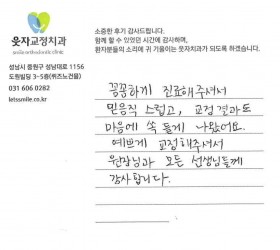 소중한 후기 감사드립니다.
함께 할 수 있었던 시간에 감사하며,
환자분들의 소리에 귀 기울이는 웃자치과가 되도록 하겠습니다.
웃자교정치과
smile orthodontic clinic
성남시 중원구 성남대로 1156
도원빌딩 3~5층(위즈노건물)
031 606 0282
letssmile.co.kr
꼼꼼하게 진료해주셔서
믿음직 스럽고, 교정 결과도
마음에 쏙 들게 나왔어요.
예쁘게 교정해주셔서
원장님과 모든 선생님들께
감사합니다.